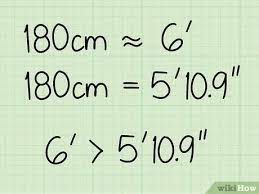 180cm ≈ 6'
180cm = 5'10.9"
6' > 5'10.9"
wikiHow